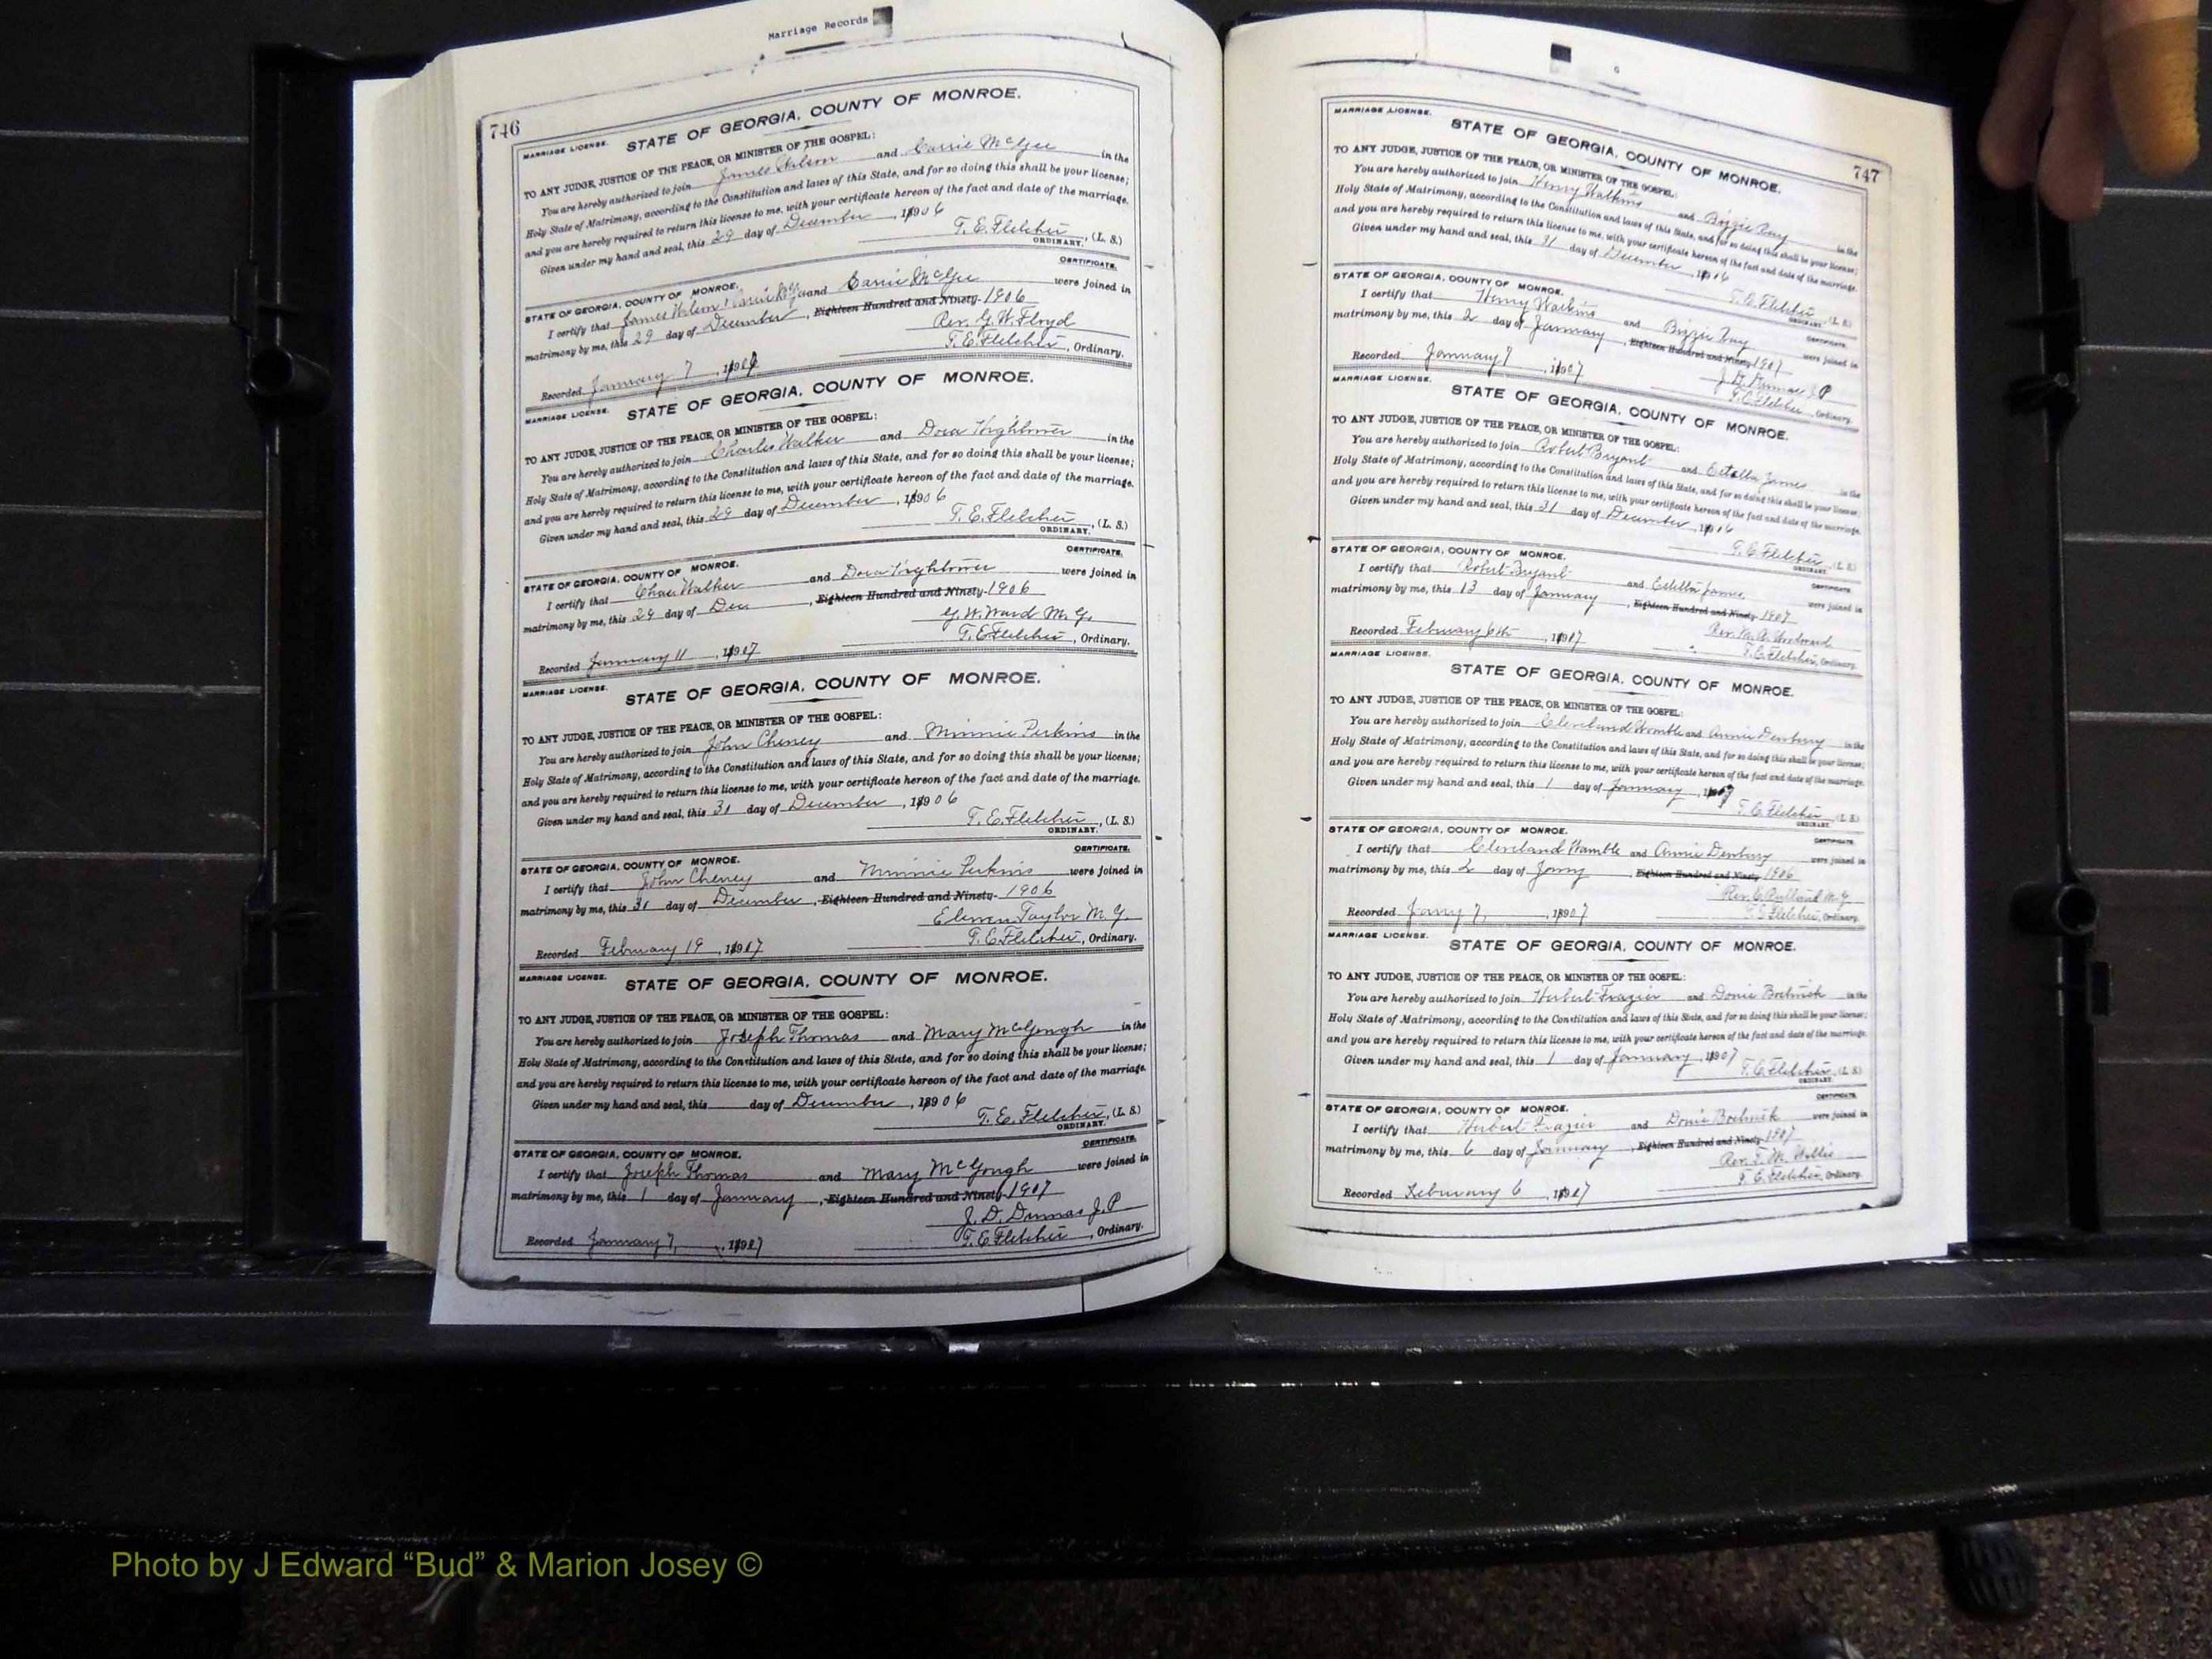 Marriage Records
746
MARRIAGE LICENSE.
STATE OF GEORGIA, COUNTY OF MONROE.
TO ANY JUDGE, JUSTICE OF THE PEACE, OR MINISTER OF THE GOSPEL:
You are hereby authorized to join James Wilson and Carrie McGee in the
Holy State of Matrimony, according to the Constitution and laws of this State, and for so doing this shall be your license;
and you are hereby required to return this license to me, with your certificate hereon of the fact and date of the marriage.
Given under my hand and seal, this 29 day of December, 1906
T. E. Fletcher, (L. S.)
ORDINARY.
CERTIFICATE.
STATE OF GEORGIA, COUNTY OF MONROE.
I certify that James Wilson and Carrie McGee were joined in
matrimony by me, this 29 day of December, Eighteen Hundred and Ninety- 1906
Rev. G. W. Floyd
Recorded January 7, 190
T. E. Fletcher, Ordinary.
MARRIAGE LICENSE.
STATE OF GEORGIA, COUNTY OF MONROE.
TO ANY JUDGE, JUSTICE OF THE PEACE, OR MINISTER OF THE GOSPEL:
You are hereby authorized to join Charles Walker and Dora Hightower in the
Holy State of Matrimony, according to the Constitution and laws of this State, and for so doing this shall be your license;
and you are hereby required to return this license to me, with your certificate hereon of the fact and date of the marriage.
Given under my hand and seal, this 29 day of December, 1906
T. E. Fletcher, (L. S.)
ORDINARY.
CERTIFICATE.
STATE OF GEORGIA, COUNTY OF MONROE.
I certify that Chas Walker and Dora Hightower were joined in
matrimony by me, this 29 day of Dec, Eighteen Hundred and Ninety- 1906
G. W. Ward M. G.
Recorded January 11, 1907
T. E. Fletcher, Ordinary.
MARRIAGE LICENSE.
STATE OF GEORGIA, COUNTY OF MONROE.
TO ANY JUDGE, JUSTICE OF THE PEACE, OR MINISTER OF THE GOSPEL:
You are hereby authorized to join John Cheney and Minnie Perkins in the
Holy State of Matrimony, according to the Constitution and laws of this State, and for so doing this shall be your license;
and you are hereby required to return this license to me, with your certificate hereon of the fact and date of the marriage.
Given under my hand and seal, this 31 day of December, 1906
T. E. Fletcher, (L. S.)
ORDINARY.
CERTIFICATE.
STATE OF GEORGIA, COUNTY OF MONROE.
I certify that John Cheney and Minnie Perkins were joined in
matrimony by me, this 31 day of December, Eighteen Hundred and Ninety- 1906
Taylor M. G.
Recorded February 19, 1907
T. E. Fletcher, Ordinary.
MARRIAGE LICENSE.
STATE OF GEORGIA, COUNTY OF MONROE.
TO ANY JUDGE, JUSTICE OF THE PEACE, OR MINISTER OF THE GOSPEL:
You are hereby authorized to join Joseph Thomas and Mary McGough in the
Holy State of Matrimony, according to the Constitution and laws of this State, and for so doing this shall be your license;
and you are hereby required to return this license to me, with your certificate hereon of the fact and date of the marriage.
Given under my hand and seal, this day of December, 1906
T. E. Fletcher, (L. S.)
ORDINARY.
CERTIFICATE.
STATE OF GEORGIA, COUNTY OF MONROE.
I certify that Joseph Thomas and Mary McGough were joined in
matrimony by me, this 1 day of January, Eighteen Hundred and Ninety- 1907
J. D. Dumas J. P
Recorded January 7, 1907
T. E. Fletcher, Ordinary.
747
MARRIAGE LICENSE.
STATE OF GEORGIA, COUNTY OF MONROE.
TO ANY JUDGE, JUSTICE OF THE PEACE, OR MINISTER OF THE GOSPEL:
You are hereby authorized to join Henry Watkins and Bizzie in the
Holy State of Matrimony, according to the Constitution and laws of this State, and for so doing this shall be your license;
and you are hereby required to return this license to me, with your certificate hereon of the fact and date of the marriage.
Given under my hand and seal, this 31 day of December, 1906
T. E. Fletcher, (L. S.)
ORDINARY.
CERTIFICATE.
STATE OF GEORGIA, COUNTY OF MONROE.
I certify that Henry Watkins and Bizzie were joined in
matrimony by me, this 2 day of January, Eighteen Hundred and Ninety- 1907
J. D. Dumas J. P
Recorded January 7, 1907
T. E. Fletcher, Ordinary.
MARRIAGE LICENSE.
STATE OF GEORGIA, COUNTY OF MONROE.
TO ANY JUDGE, JUSTICE OF THE PEACE, OR MINISTER OF THE GOSPEL:
You are hereby authorized to join Robert Bryant and Estella James in the
Holy State of Matrimony, according to the Constitution and laws of this State, and for so doing this shall be your license;
and you are hereby required to return this license to me, with your certificate hereon of the fact and date of the marriage.
Given under my hand and seal, this 31 day of December, 1906
T. E. Fletcher, (L. S.)
ORDINARY.
CERTIFICATE.
STATE OF GEORGIA, COUNTY OF MONROE.
I certify that Robert Bryant and Estella James were joined in
matrimony by me, this 13 day of January, Eighteen Hundred and Ninety- 1907
Rev.
Recorded February 6th, 1907
T. E. Fletcher, Ordinary.
MARRIAGE LICENSE.
STATE OF GEORGIA, COUNTY OF MONROE.
TO ANY JUDGE, JUSTICE OF THE PEACE, OR MINISTER OF THE GOSPEL:
You are hereby authorized to join Cleveland Womble and Annie Denbury in the
Holy State of Matrimony, according to the Constitution and laws of this State, and for so doing this shall be your license;
and you are hereby required to return this license to me, with your certificate hereon of the fact and date of the marriage.
Given under my hand and seal, this 1 day of January, 1907
T. E. Fletcher (L. S.)
ORDINARY.
CERTIFICATE.
STATE OF GEORGIA, COUNTY OF MONROE.
I certify that Cleveland Wamble and Annie Denbury were joined in
matrimony by me, this 2 day of Jany, Eighteen Hundred and Ninety- 1906
Rev. M. G
Recorded Jany 7, 1907
T. E. Fletcher, Ordinary.
MARRIAGE LICENSE.
STATE OF GEORGIA, COUNTY OF MONROE.
TO ANY JUDGE, JUSTICE OF THE PEACE, OR MINISTER OF THE GOSPEL:
You are hereby authorized to join Herbert Frazier and Donie in the
Holy State of Matrimony, according to the Constitution and laws of this State, and for so doing this shall be your license;
and you are hereby required to return this license to me, with your certificate hereon of the fact and date of the marriage.
Given under my hand and seal, this 1 day of January, 1907
T. E. Fletcher, (L. S.)
ORDINARY.
CERTIFICATE.
STATE OF GEORGIA, COUNTY OF MONROE.
I certify that Herbert Frazier and Donie were joined in
matrimony by me, this 6 day of January, Eighteen Hundred and Ninety- 1907
Rev. Willis
Recorded February 6, 1907
T. E. Fletcher, Ordinary.
Photo by J Edward “Bud” & Marion Josey ©